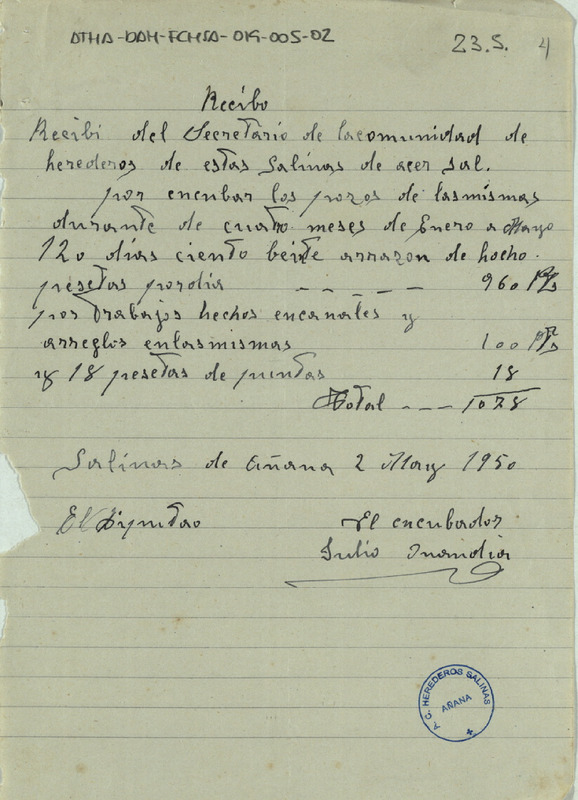 ATHA-DAH-FCHSA-019-005-02
23.5. 4
Recibo
Recibi del Secretario de lacomunidad de
herederos de estas Salinas de acer sal.
por encubar los pozos de lasmismas
durante de cuatro meses de Enero a Mayo
120 dias ciento beinte arrazon de hocho.
pesetas pordia - - - - - 960 Pts
por Trabajos hechos encanales y
arreglos enlasmismas 100 Pts
y 18 pesetas de puntas 18
Total - - - 1078
Salinas de Añana 2 May 1950
El Diputao El encubador
Julio
A.C. HEREDEROS SALINAS
AÑANA